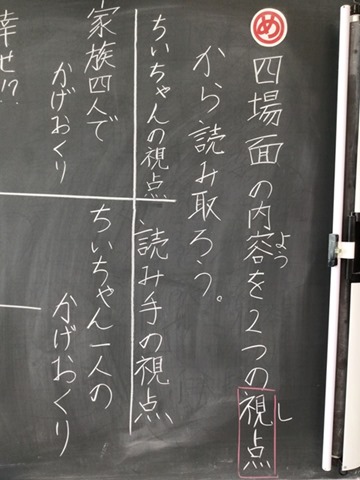 め
四場面の内容を2つの視点
よう
し
から読み取ろう。
ちいちゃんの視点
読み手の視点
家族四人で
かげおくり
ちいちゃん一人の
かげおくり
幸せ!?